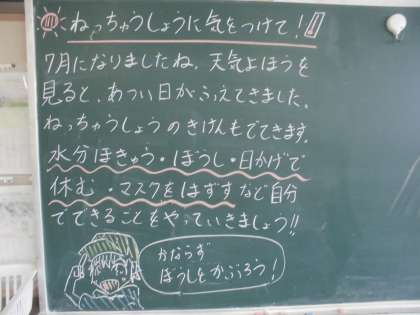 ねっちゅうしょうに気をつけて!!
7月になりましたね。天気よほうを
見ると、あつい日がふえてきました。
ねっちゅうしょうのきけんもでてきます。
水分ほきゅう・ぼうし・日かげで
休む・マスクをはずすなど自分
でできることをやっていきましょう!!
かならず
ぼうしをかぶろう!